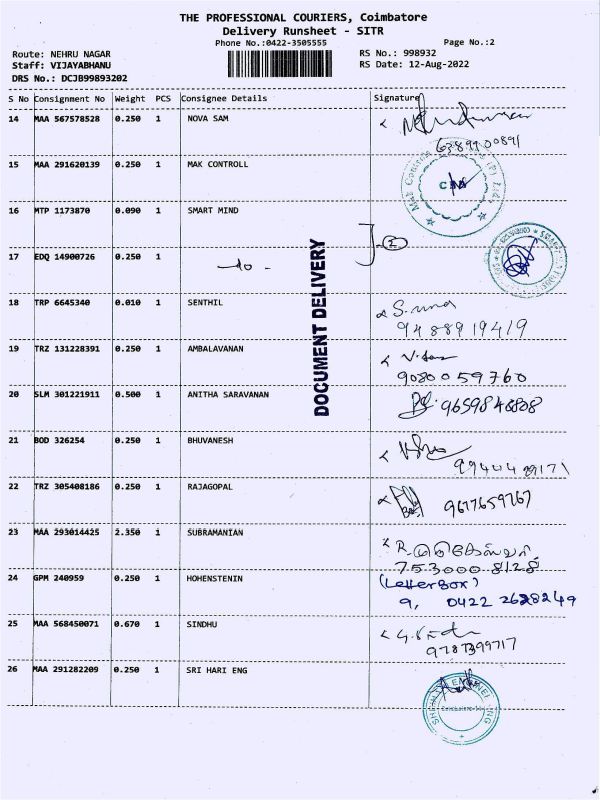 THE PROFESSIONAL COURIERS, Coimbatore
Delivery Runsheet - SITR
Phone No.:0422-3505555 Page No.:2
Route: NEHRU NAGAR RS No.: 998932
Staff: VIJAYABHANU RS Date: 12-Aug-2022
DRS No.: DCJB99893202
S No Consignment No Weight PCS Consignee Details Signature
14 MAA 567578528 0.250 1 NOVA SAM
15 MAA 291620139 0.250 1 MAK CONTROLL
16 MTP 1173870 0.090 1 SMART MIND
17 EDQ 14900726 0.250 1 -do-
DOCUMENT DELIVERY
18 TRP 6645340 0.010 1 SENTHIL
9488919419
19 TRZ 131228391 0.250 1 AMBALAVANAN
9080059760
20 SLM 301221911 0.500 1 ANITHA SARAVANAN 9659848808
21 BOD 326254 0.250 1 BHUVANESH
22 TRZ 305408186 0.250 1 RAJAGOPAL 9677659767
23 MAA 293014425 2.350 1 SUBRAMANIAN
753000 8128
24 GPM 240959 0.250 1 HOHENSTENIN (Letter Box)
9, 0422 2628249
25 MAA 568450071 0.670 1 SINDHU
9787399717
26 MAA 291282209 0.250 1 SRI HARI ENG